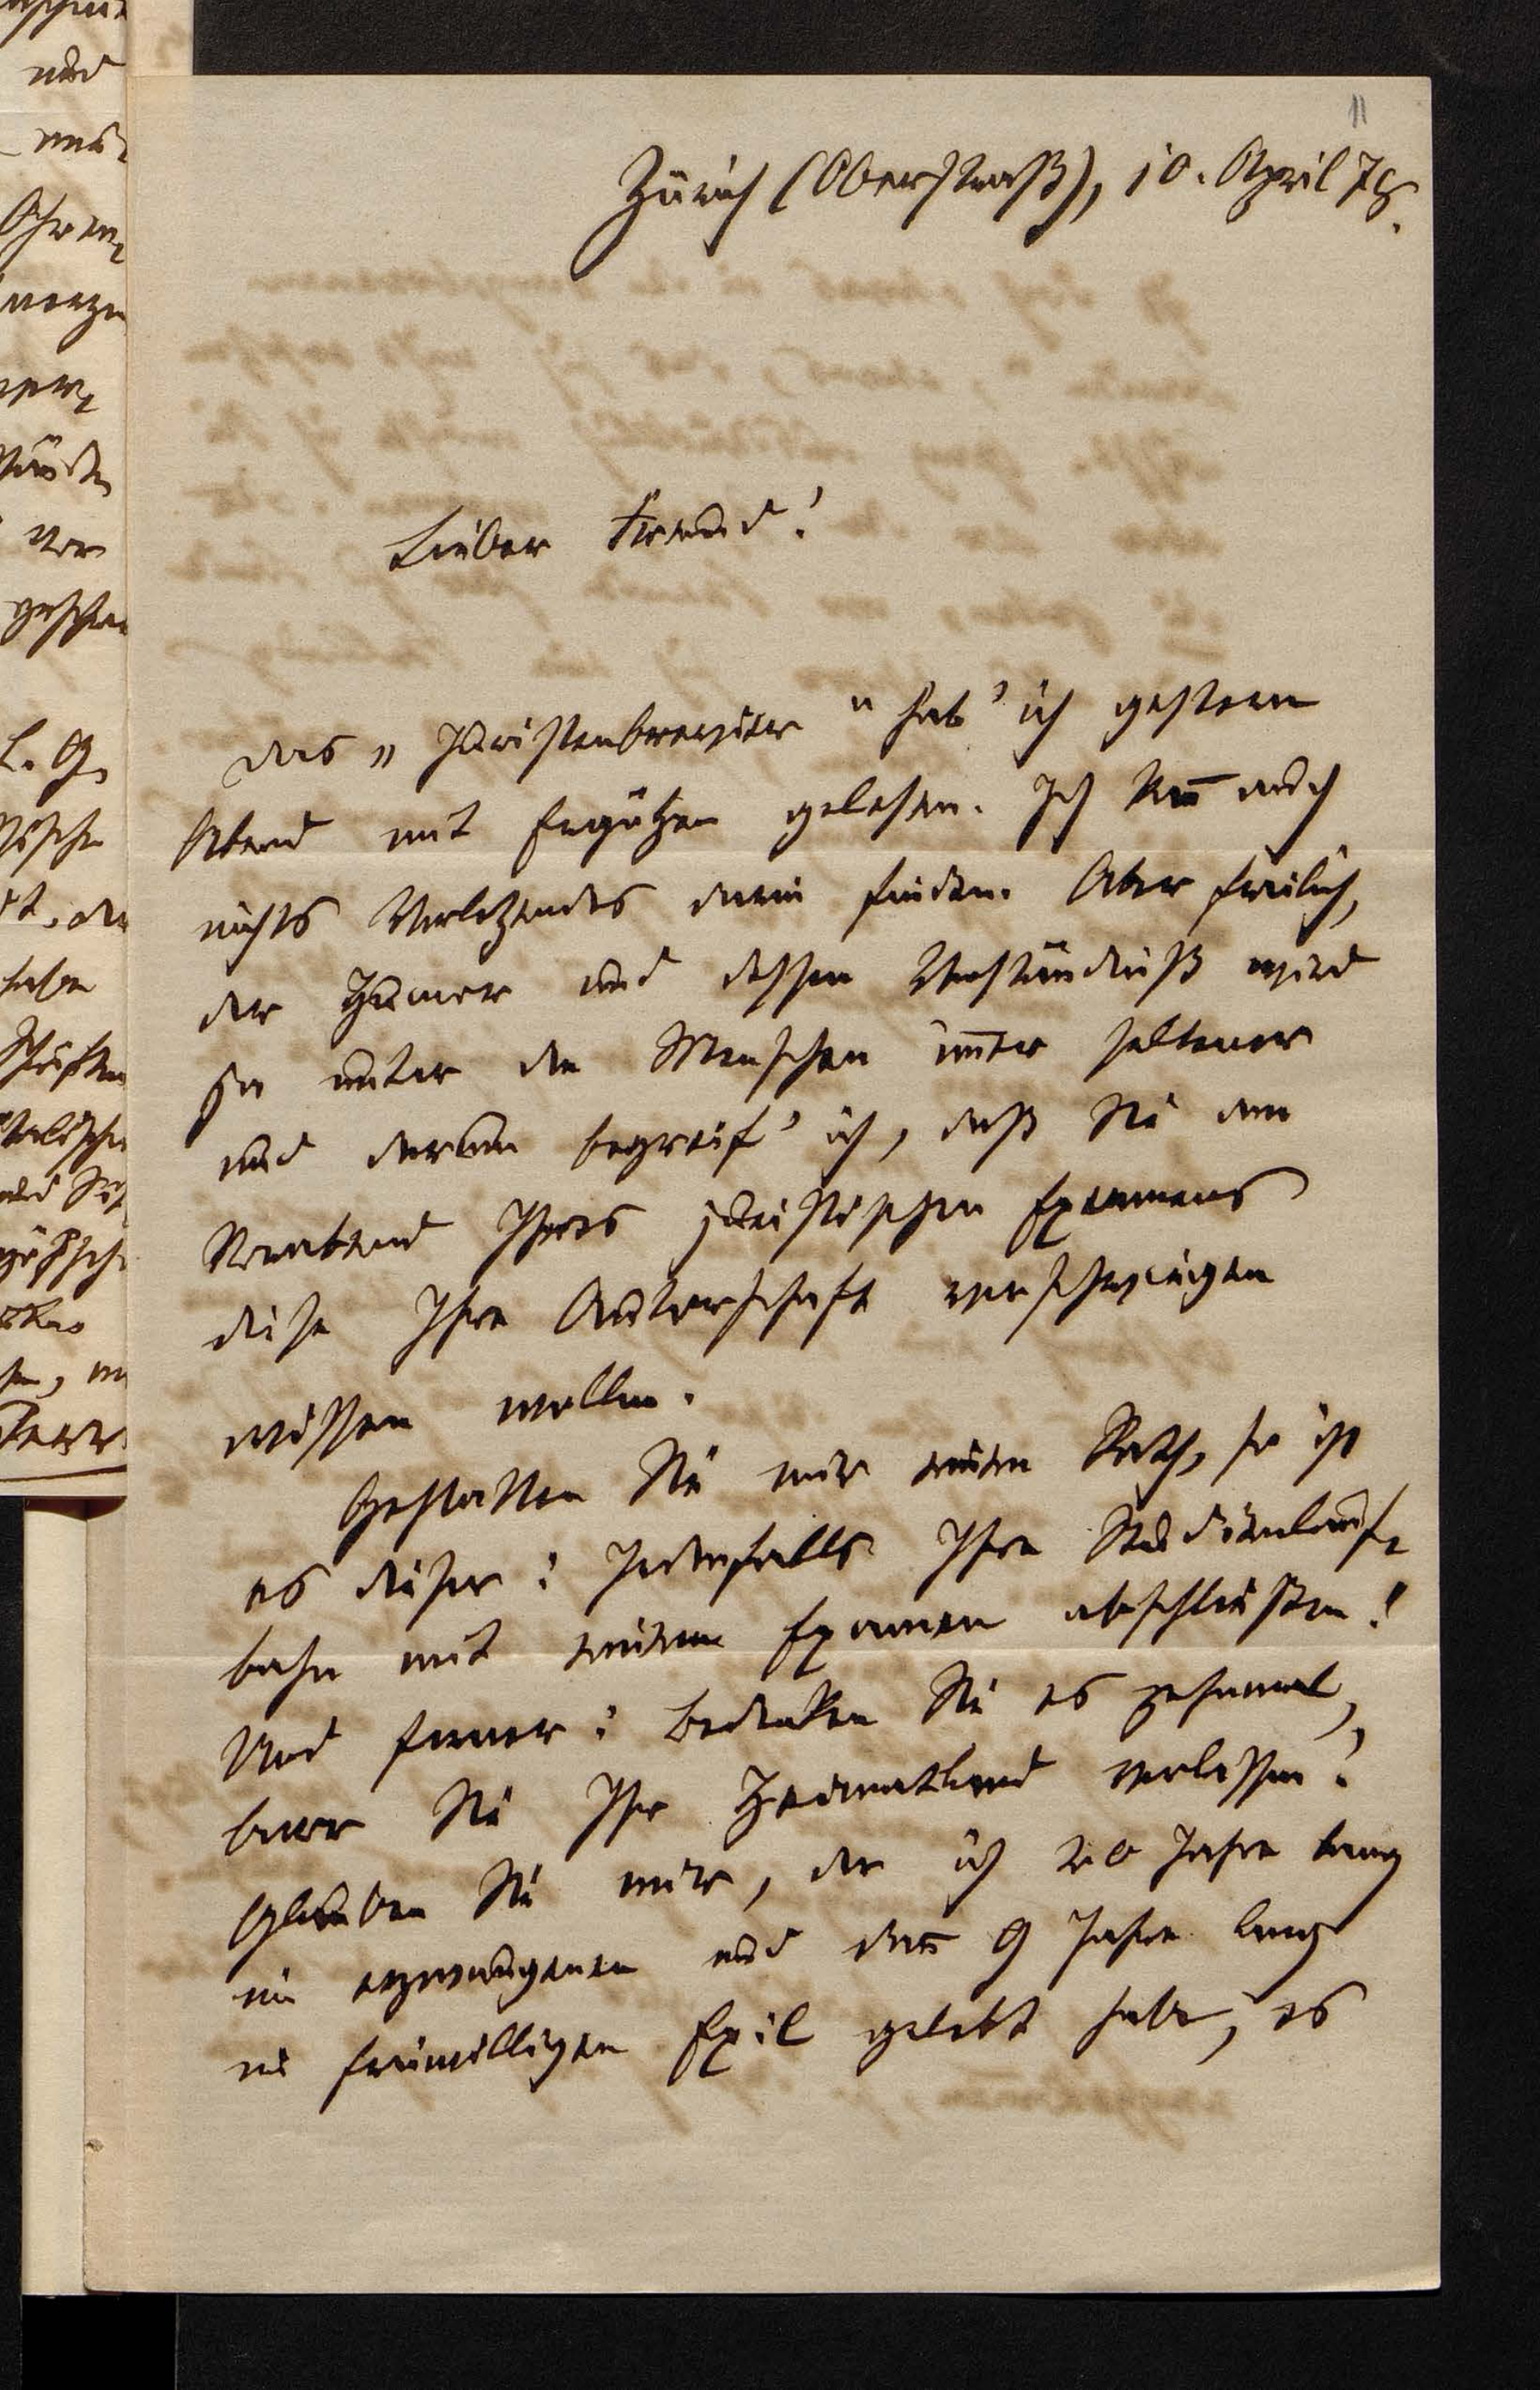 11
Zürich (Oberstraß), 10. April 78.
Lieber Freund!
Das „Juristenbrevier“ hab' ich gestern
Abend mit Ergötzen gelesen. Ich kan̅ auch
nichts Verletzendes darin finden. Aber freilich,
der Humor und dessen Verständniß wird
ja unter den Menschen im̅er seltener
und darum begreif' ich, daß Sie am
Vorabend Ihres juristischen Examens
diese Ihre Autorschaft verschwiegen
wissen wollen.
Gestatten Sie mir einen Rath, so ist
es dieser: Jedenfalls Ihre Studienlauf-
bahn mit einem Examen abschließen!
Und ferner: Bedenken Sie es zehnmal,
bevor Sie Ihr Heimatland verlassen!
Glauben Sie mir, der ich 20 Jahre lang
im erzwungenen und dan̅ 9 Jahre lang
im freiwilligen Exil gelebt habe, es
und
Ohren-
vor
L. G.
habe